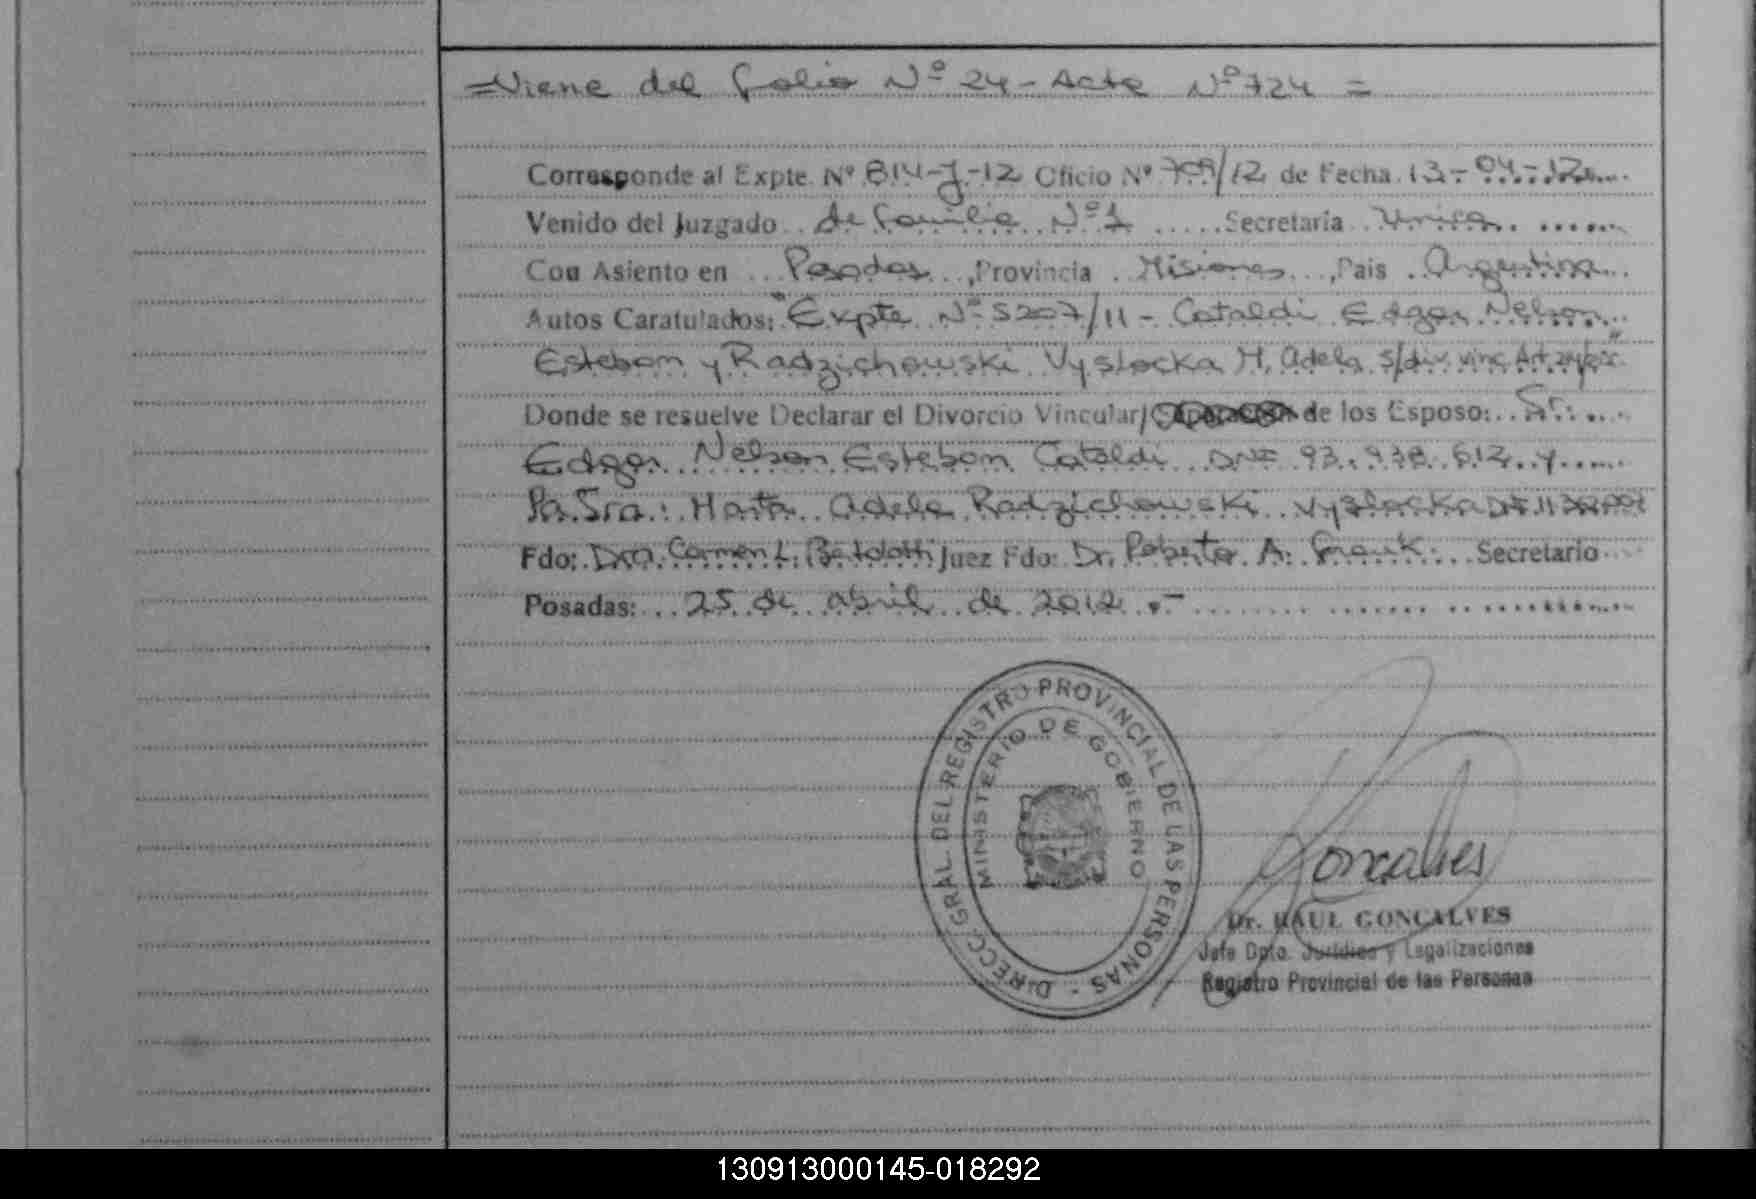 =Viene del folio Nº 24 - Acta Nº 724 =
Corresponde al Expte. Nº 814-J-12 Oficio Nº 709/12 de Fecha 13-04-12
Venido del Juzgado de familia Nº 1 Secretaria Unica
Con Asiento en Posadas, Provincia Misiones, Pais Argentina
Autos Caratulados: "Expte Nº 5207/11 - Cataldi Edgar Nelson
Esteban y Radzichowski Vyslocka M. Adela s/div. vinc. Art.
Donde se resuelve Declarar el Divorcio Vincular/ de los Esposo: Sr.
Edgar Nelson Esteban Cataldi DNI 93.938.612 y
la Sra.: Marta Adela Radzichowski Vyslocka DNI
Fdo: Dra. Carmen L. Bartolotti Juez Fdo: Dr. Roberto A. Frank. Secretario
Posadas: 25 de abril de 2012.-
DIRECC. GRAL. DEL REGISTRO PROVINCIAL DE LAS PERSONAS -
MINISTERIO DE GOBIERNO
Goncalves
Dr. RAUL GONCALVES
Jefe Dpto. Jurídico y Legalizaciones
Registro Provincial de las Personas
130913000145-018292